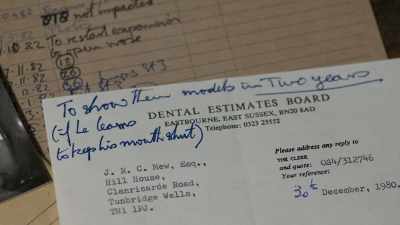 018 not impacted
.10.82 To restart expansion
to open nose
7.11.82
.11.82
.82
.82
To show them models in Two years
DENTAL ESTIMATES BOARD
EASTBOURNE, EAST SUSSEX, BN20 8AD
Telephone: 0323 25552
(if he learns
to keep his mouth shut)
J. R. C. Mew, Esq.,
Hill House,
Glenricarde Road,
Tunbridge Wells,
TN1 1PJ.
Please address any reply to
THE CLERK
and quote: 084/312746
Your reference:
30th December, 1980.